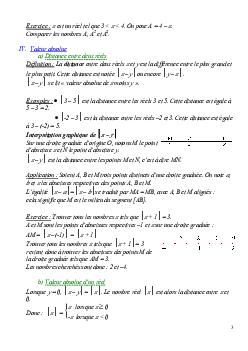 Exercice : x est un réel tel que 3 < x < 4. On pose A = 4 – x.
Comparer les nombres A, A² et A³.
IV. Valeur absolue
a) Distance entre deux réels
Définition : La distance entre deux réels x et y est la différence entre le plus grand et
le plus petit. Cette distance est notée |x – y| ou encore |y – x|.
|x – y| se lit « valeur absolue de x moins y ».
Exemples : ● |3 – 5| est la distance entre les réels 3 et 5. Cette distance est égale à
5 – 3 = 2.
● |-2 – 3| est la distance entre les réels –2 et 3. Cette distance est égale
à 3 – (-2) = 5.
Interprétation graphique de |x – y|
Sur une droite graduée d'origine O, notons M le point
d'abscisse x et N le point d'abscisse y.
|x – y| est la distance entre les points M et N, c'est à dire MN.
Application : Soient A, B et M trois points distincts d'une droite graduée. On note a,
b et x les abscisses respectives des points A, B et M.
L'égalité |x – a| = |x – b| se traduit par MA = MB, avec A, B et M alignés :
cela signifie que M est le milieu du segment [AB].
Exercice : Trouver tous les nombres x tels que |x + 1| = 3.
A et M sont les points d'abscisses respectives –1 et x sur une droite graduée :
AM = |x – (-1)| = |x + 1|
Trouver tous les nombres x tels que |x + 1| = 3
revient donc à trouver les abscisses des points M de
la droite graduée tels que AM = 3.
Les nombres cherchés sont donc : 2 et –4.
b) Valeur absolue d'un réel
Lorsque y = 0, |x – y| = |x|. Le nombre réel |x| est alors la distance entre x et
0.
Donc : |x| = { x lorsque x ≥ 0
–x lorsque x < 0
3